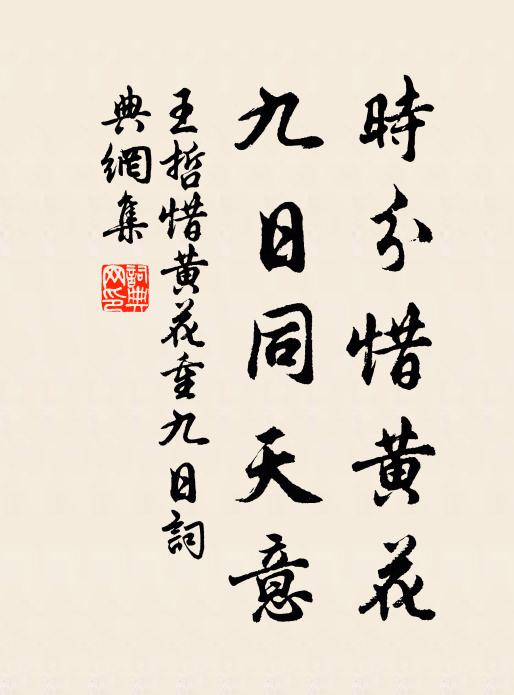 時分惜黄花
九日同天意
王哲惜黄花重九日詞
典網集
詞典网印